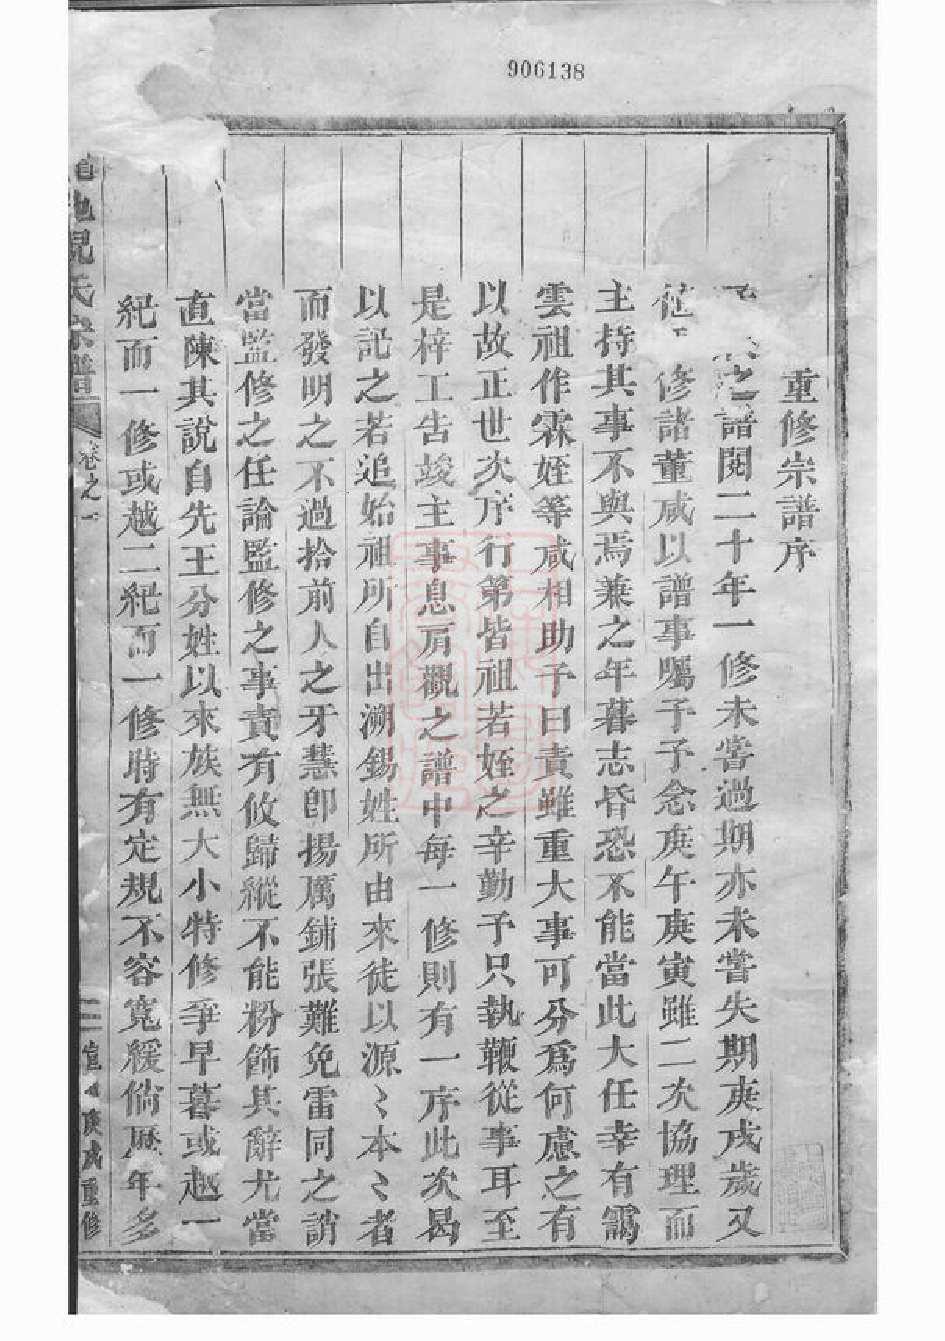 906138
重修宗譜序
之譜閱二十年一修未嘗過期亦未嘗失期庚戌歲又
修諸董咸以譜事囑予予念庚午庚寅雖二次協理而
主持其事不與焉兼之年暮志昏恐不能當此大任幸有靄
雲祖作霖姪等咸相助予曰責雖重大事可分爲何慮之有
以故正世次序行第皆祖若姪之辛勤予只執鞭從事耳至
是梓工告竣主事息肩觀之譜中每一修則有一序此次曷
以訛之若追始祖所自出溯錫姓所由來徒以源〻本〻者
而發明之不過拾前人之牙慧卽揚厲鋪張難免雷同之誚
當監修之任論監修之事責有攸歸縱不能粉飾其辭尤當
直陳其說自先王分姓以來族無大小特修爭早暮或越一
紀而一修或越二紀而一修時有定規不容寬緩倘歷年多
氏宗譜
卷之一
庚戌重修